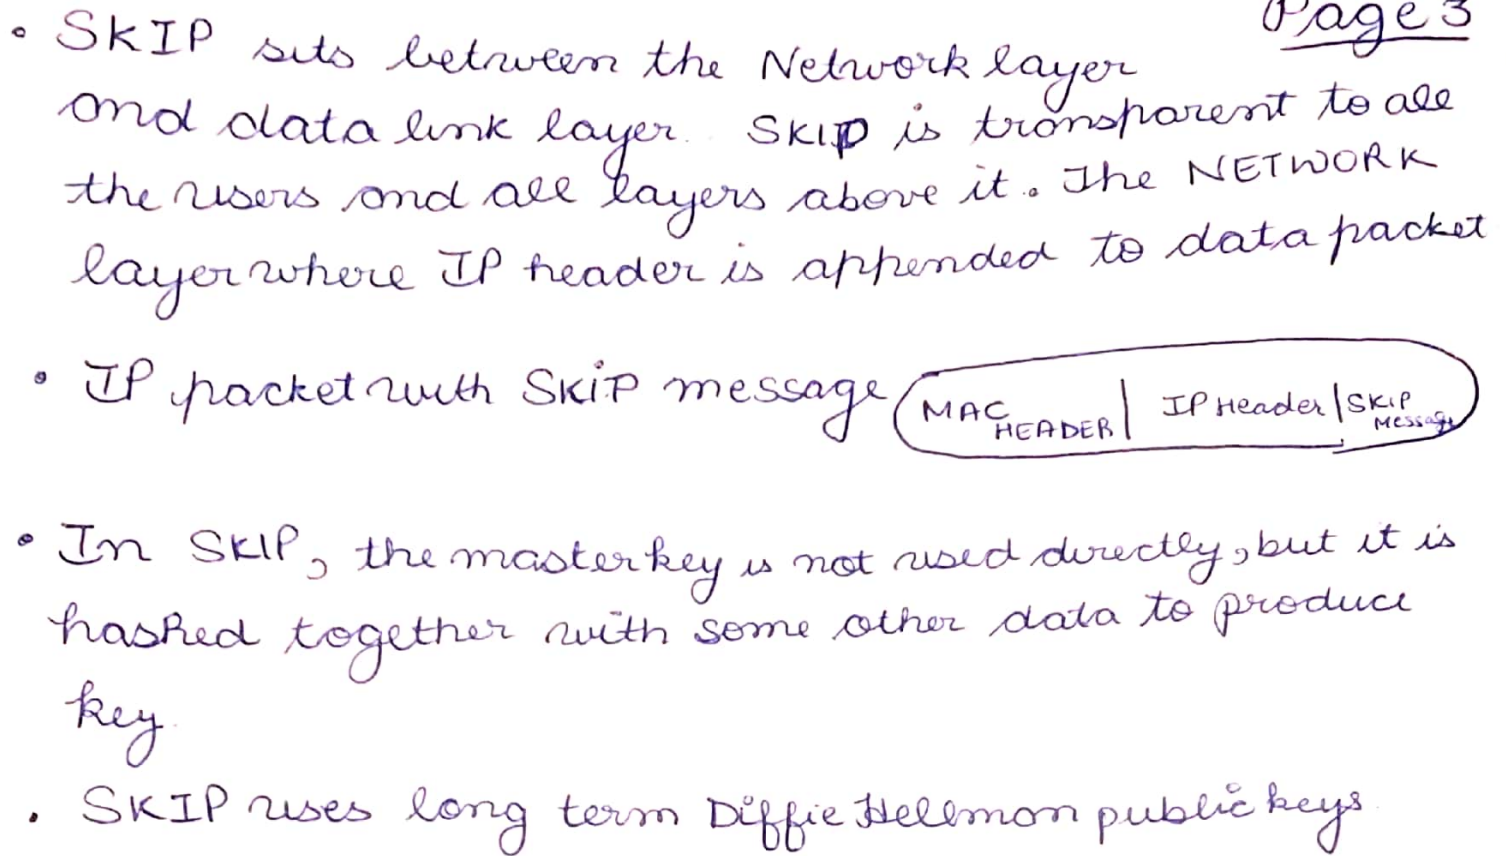 Page 3
• SKIP sits between the Network layer
and data link layer. SKIP is transparent to all
the users and all layers above it. The NETWORK
layer where IP header is appended to data packet
• IP packet with SKIP message
MAC HEADER | IP Header | SKIP Message
• In SKIP, the master key is not used directly, but it is
hashed together with some other data to produce
key.
• SKIP uses long term Diffie Hellman public keys.